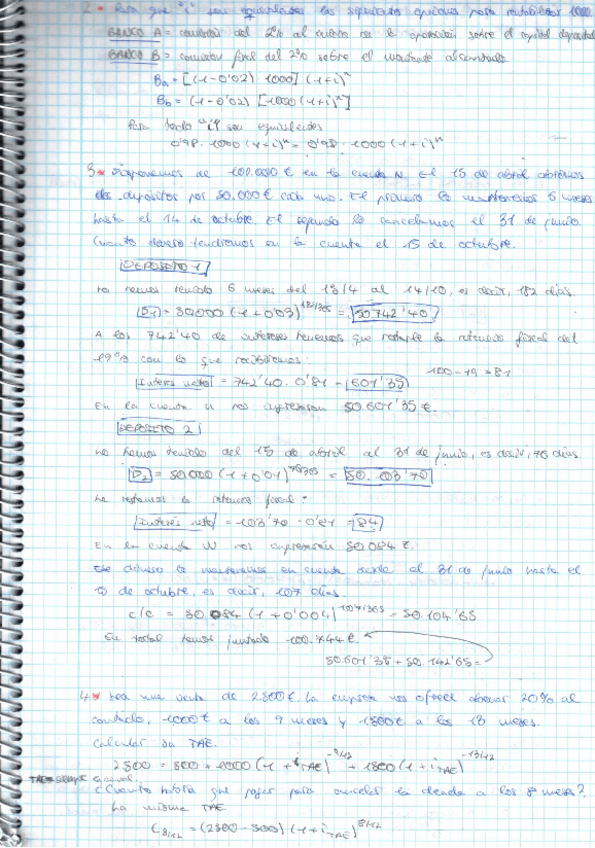 2 * Para que "i" son equivalentes las siguientes opciones para rentabilizar 1000
BANCO A = comisión del 2% al inicio de la operación sobre el capital depositado
BANCO B = comisión final del 2% sobre el montante alcanzado
Ba = [(1-0'02) 1000] (1+i)^n
Bb = (1-0'02) [1000 (1+i)^n]
Para todo "i" son equivalentes
0'98 · 1000 (1+i)^n = 0'98 · 1000 (1+i)^n
3 * Disponemos de 100.000 € en la cuenta N. El 15 de abril abrimos
dos depósitos por 50.000 € cada uno. El primero lo mantenemos 6 meses
hasta el 14 de octubre. El segundo lo cancelamos el 31 de junio.
Cuanto dinero tendremos en la cuenta el 15 de octubre.
DEPOSITO 1
Lo hemos tenido 6 meses del 15/4 al 14/10, es decir, 182 días.
D1 = 50.000 (1+0'03)^182/365 = 50.742'40
A los 742'40 de intereses tenemos que restarle la retención fiscal del
19% con lo que recibiremos:
100-19=81
Interes neto = 742'40 · 0'81 = 601'35
En la cuenta N nos ingresaran 50.601'35 €.
DEPOSITO 2
Lo hemos tenido del 15 de abril al 31 de junio, es decir, 76 días
D2 = 50.000 (1+0'01)^76/365 = 50.103'70
Le restamos la retencion fiscal:
Interés neto = 103'70 · 0'81 = 84
En la cuenta N nos ingresarán 50.084 €.
Ese dinero lo mantenemos en cuenta desde el 31 de junio hasta el
15 de octubre, es decir, 107 días.
c/c = 50.084 (1+0'004)^107/365 = 50.104'65
En total hemos juntado 100.744 €.
50.601'35 + 50.142'65 =
4 * Sea una venta de 2800 €. La empresa nos ofrece abonar 20% al
contado, 1000 € a los 9 meses y 1500 € a los 13 meses.
Calcular su TAE.
2800 = 500 + 1000 (1+i TAE)^-9/12 + 1500 (1+i TAE)^-13/12
TAE siempre anual.
¿Cuanto habra que pagar para cancelar la deuda a los 8 meses?
La misma TAE
C 8/12 = (2500-500) (1+i TAE)^8/12